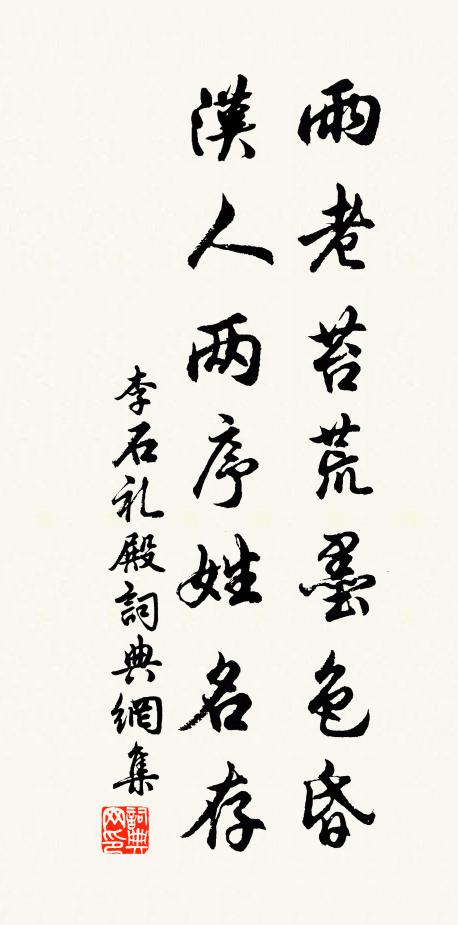 雨老苔荒墨色昏
漢人两序姓名存
李石礼殿詞典網集
詞典网印